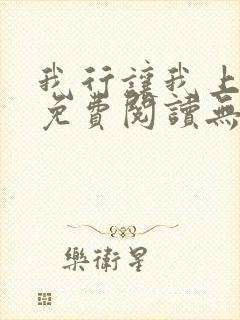 我行讓我上
免費閱讀無
樂衛星